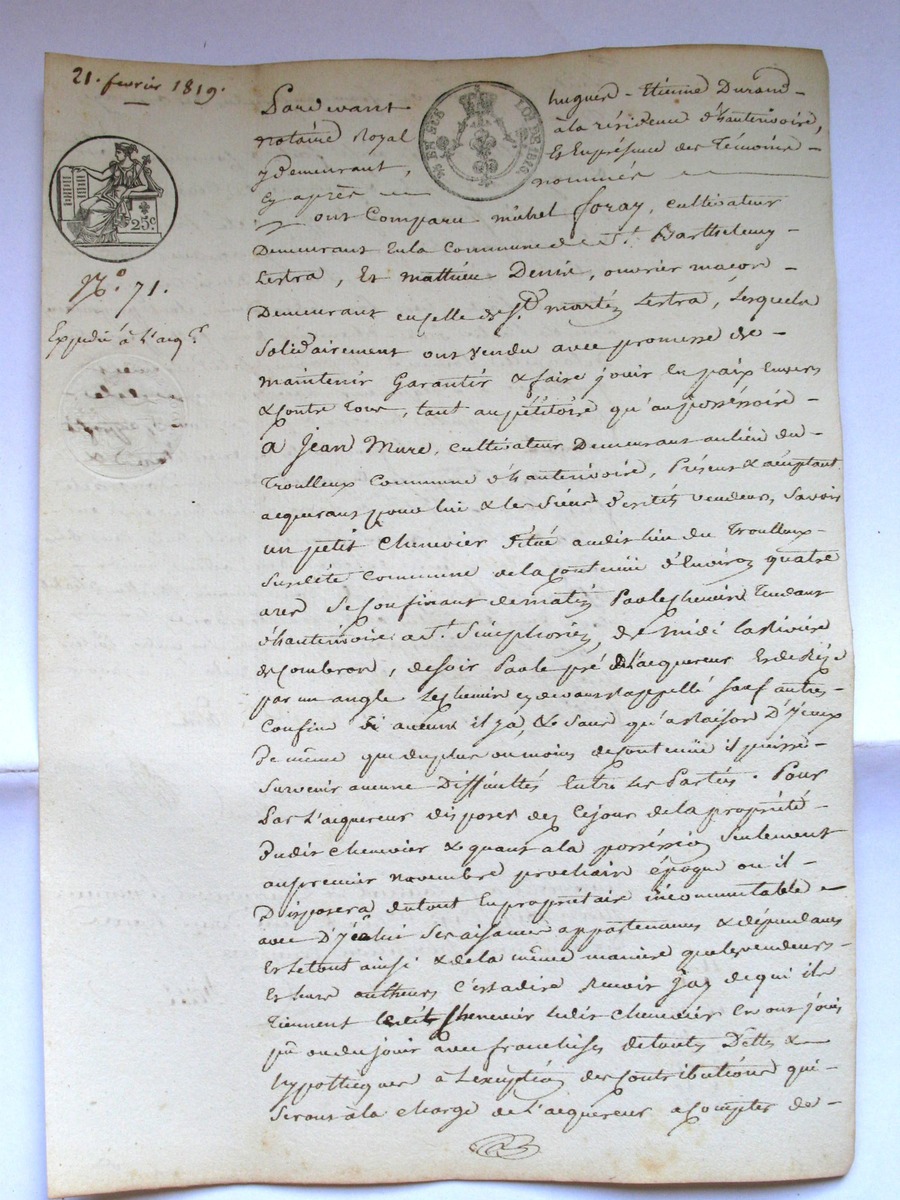 21. fevrier 1819.
25c
N.o 71.
Expedié à l'acq.r
Pardevant hugues-Etienne Durand-
notaire Royal à la résidence d'hauterivoire,
y demeurant, Et En présence des Témoins-
cy après nommés
ont Comparu michel foray, cultivateur
Demeurant En la Commune de St. Barthelemy-
Lestra, Et mathieu Denis, ouvrier maçon-
Demeurant en celle de St. martin Lestra, Lesquels
Solidairement ont vendu avec promesse de-
maintenir Garantir & faire jouir En paix Envers
& contre Tous, tant au pétitoire qu'au possessoire-
a Jean Mure, cultivateur Demeurant au lieu du-
Troulleux Commune d'hauterivoire, Présent & acceptant
acquerant pour lui & les Siens desdits vendeurs, Savoir
un petit Chenevier Situé audit lieu du Troulleux-
Susditte Commune de la Contenüe d'Environ quatre
ares Se Confinant de matin Par le chemin Tendant
d'hauterivoire a St. Simphorien, de midi la Rivière
de Combron, de soir Par le pré de l'acquereur Et de Bize
par un angle Le chemin cy devant Rappellé Sauf autres-
Confins Si aucuns il y a, & Sans qu'a Raison D'Iceux
De même que du plus ou moins de Contenüe il puisse-
Survenir aucune Difficultés Entre les Parties. Pour
Par L'acquereur disposer dez Ce jour de la propriété-
Dudit Chenevier & quant a la possession Seulement
au premier novembre prochain époque ou il-
Disposera du tout En propriétaire incommutable-
avec D'Icelui Ses aisances appartenances & dépendances
Et Le tout ainsi & de la même manière que les vendeurs-
Et leurs autheurs C'est a dire de qui ils
Tiennent Ledit Chenevier En ont jouis
pû ou du jouir avec franchises de toutes Dettes &-
hypotheques à L'exception des Contributions qui-
Seront à la charge de L'acquereur a Compter de-